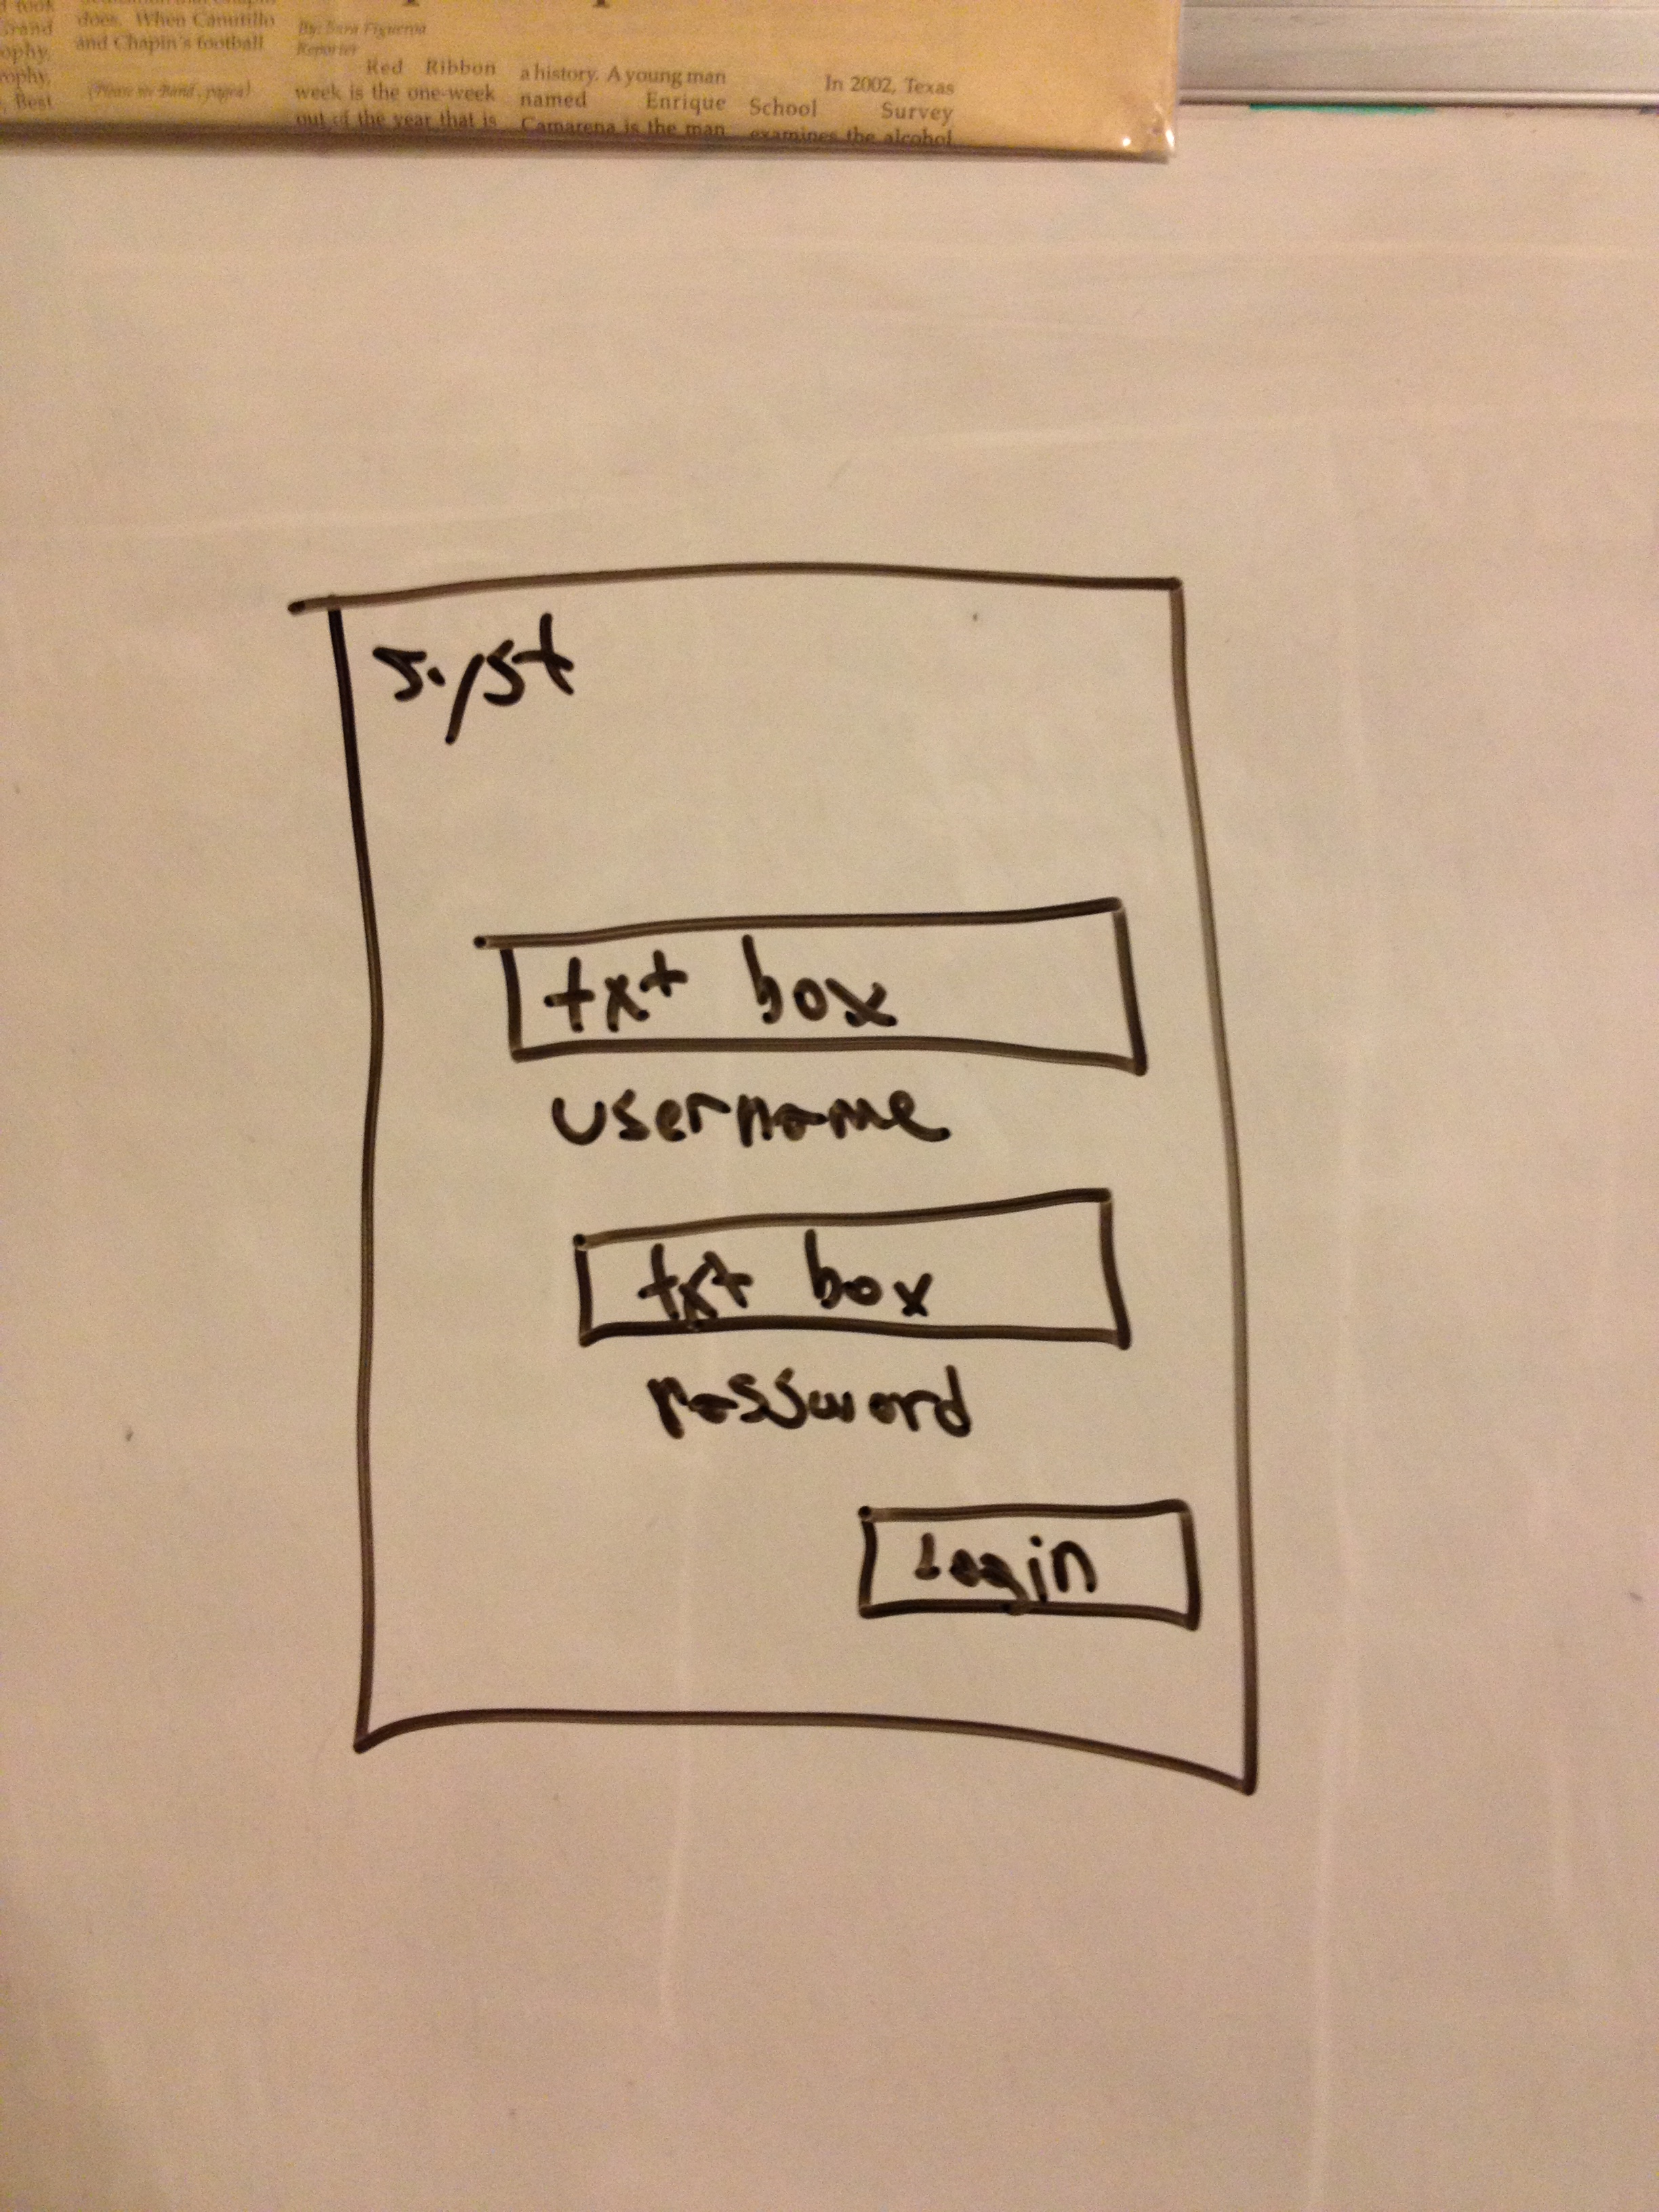 and Chapin's football
does. When Canutillo
By: Sara Figueroa
Reporter
Red Ribbon
week is the one-week
out of the year that is
a history. A young man
named Enrique
Camarena is the man
In 2002, Texas
School Survey
examines the alcohol
syst
txt box
username
txt box
password
Login